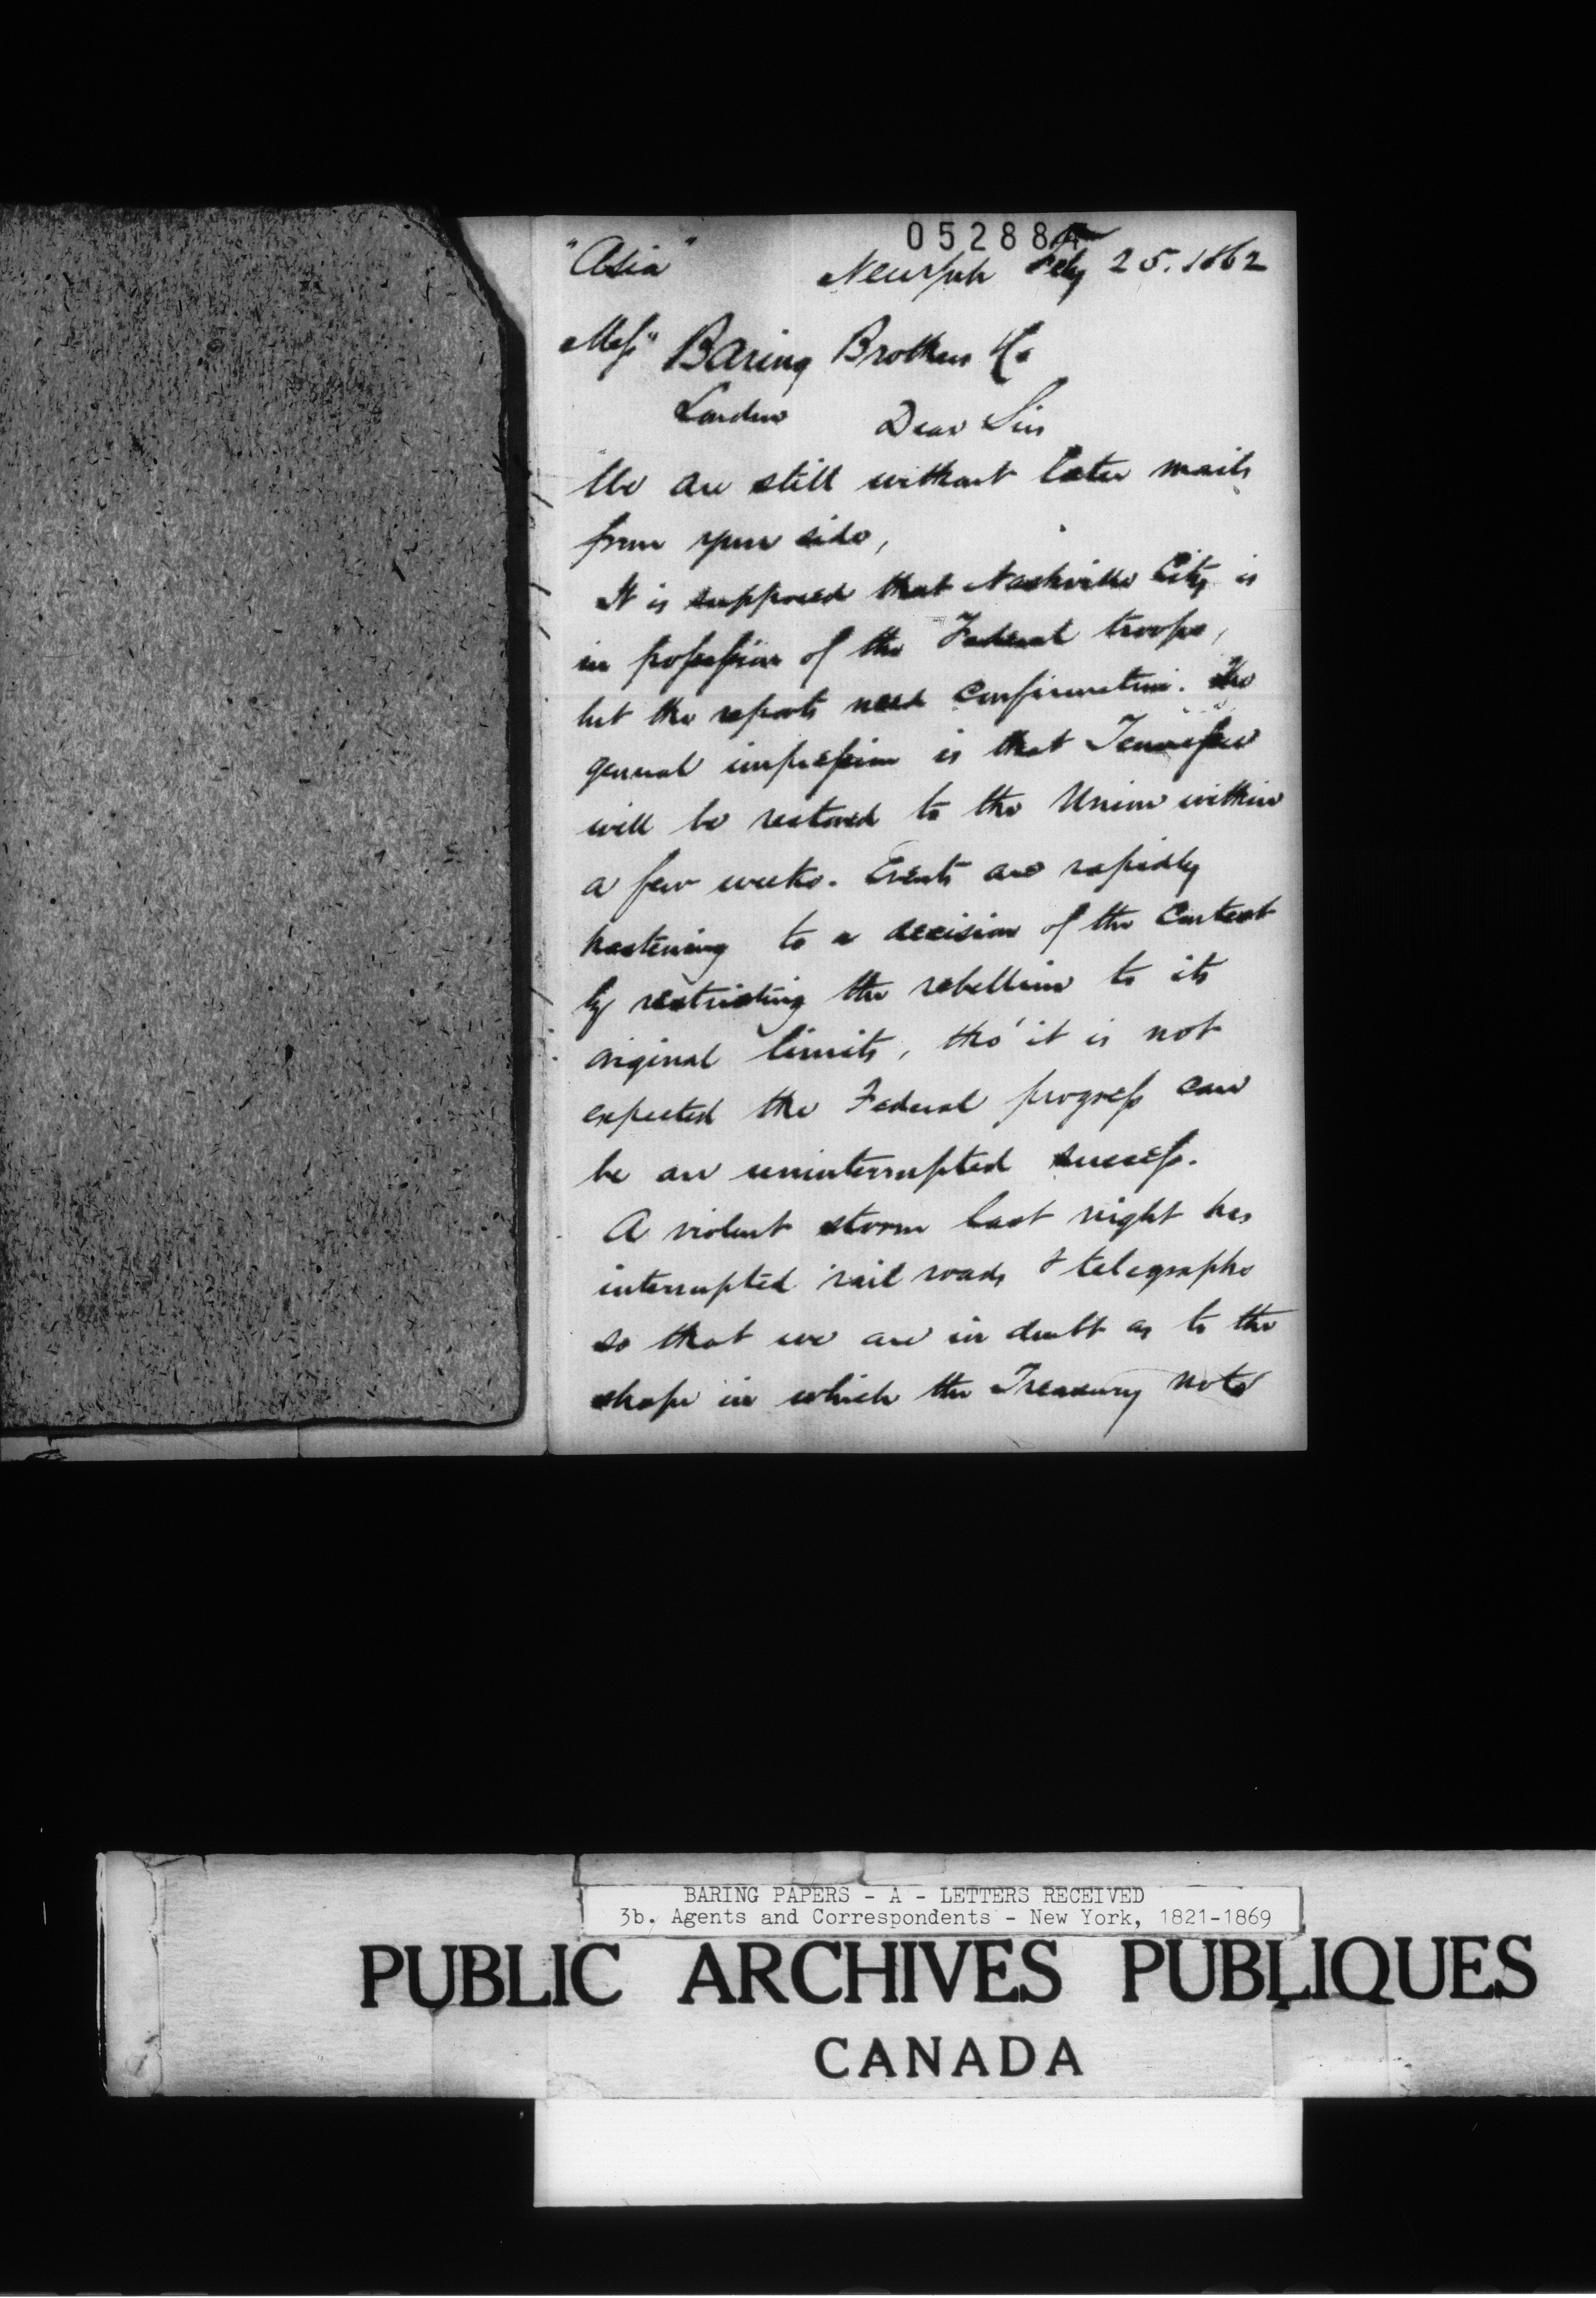 052884
"Asia"
New York Feby 25. 1862
Mess" Baring Brothers & Co
London Dear Sirs
We are still without later mails
from your side,
It is supposed that Nashville City is
in possession of the Federal troops,
but the reports need confirmation. The
general impression is that Tennessee
will be restored to the Union within
a few weeks. Events are rapidly
hastening to a decision of the Contest
by restricting the rebellion to its
original limits, tho' it is not
expected the Federal progress can
be an uninterrupted success.
A violent storm last night has
interrupted rail roads & telegraphs
so that we are in doubt as to the
shape in which the Treasury note
BARING PAPERS - A - LETTERS RECEIVED
3b. Agents and Correspondents - New York, 1821-1869
PUBLIC ARCHIVES PUBLIQUES
CANADA